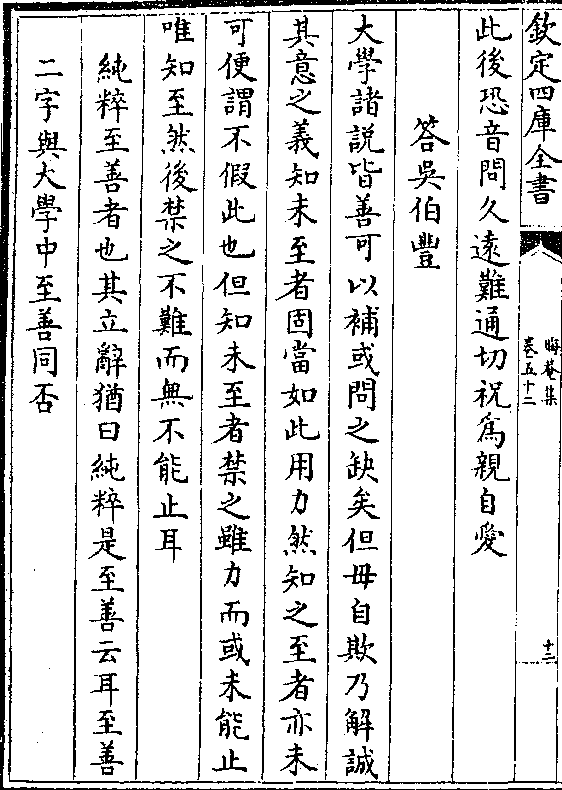 欽定四庫全書
晦菴集
卷五十二
十三
此後恐音問久遠難通切祝為親自愛
答吳伯豐
大學諸説皆善可以補或問之缺矣但毋自欺乃解誠
其意之義知未至者固當如此用力然知之至者亦未
可便謂不假此也但知未至者禁之雖力而或未能止
唯知至然後禁之不難而無不能止耳
純粹至善者也其立辭猶曰純粹是至善云耳至善
二字與大學中至善同否